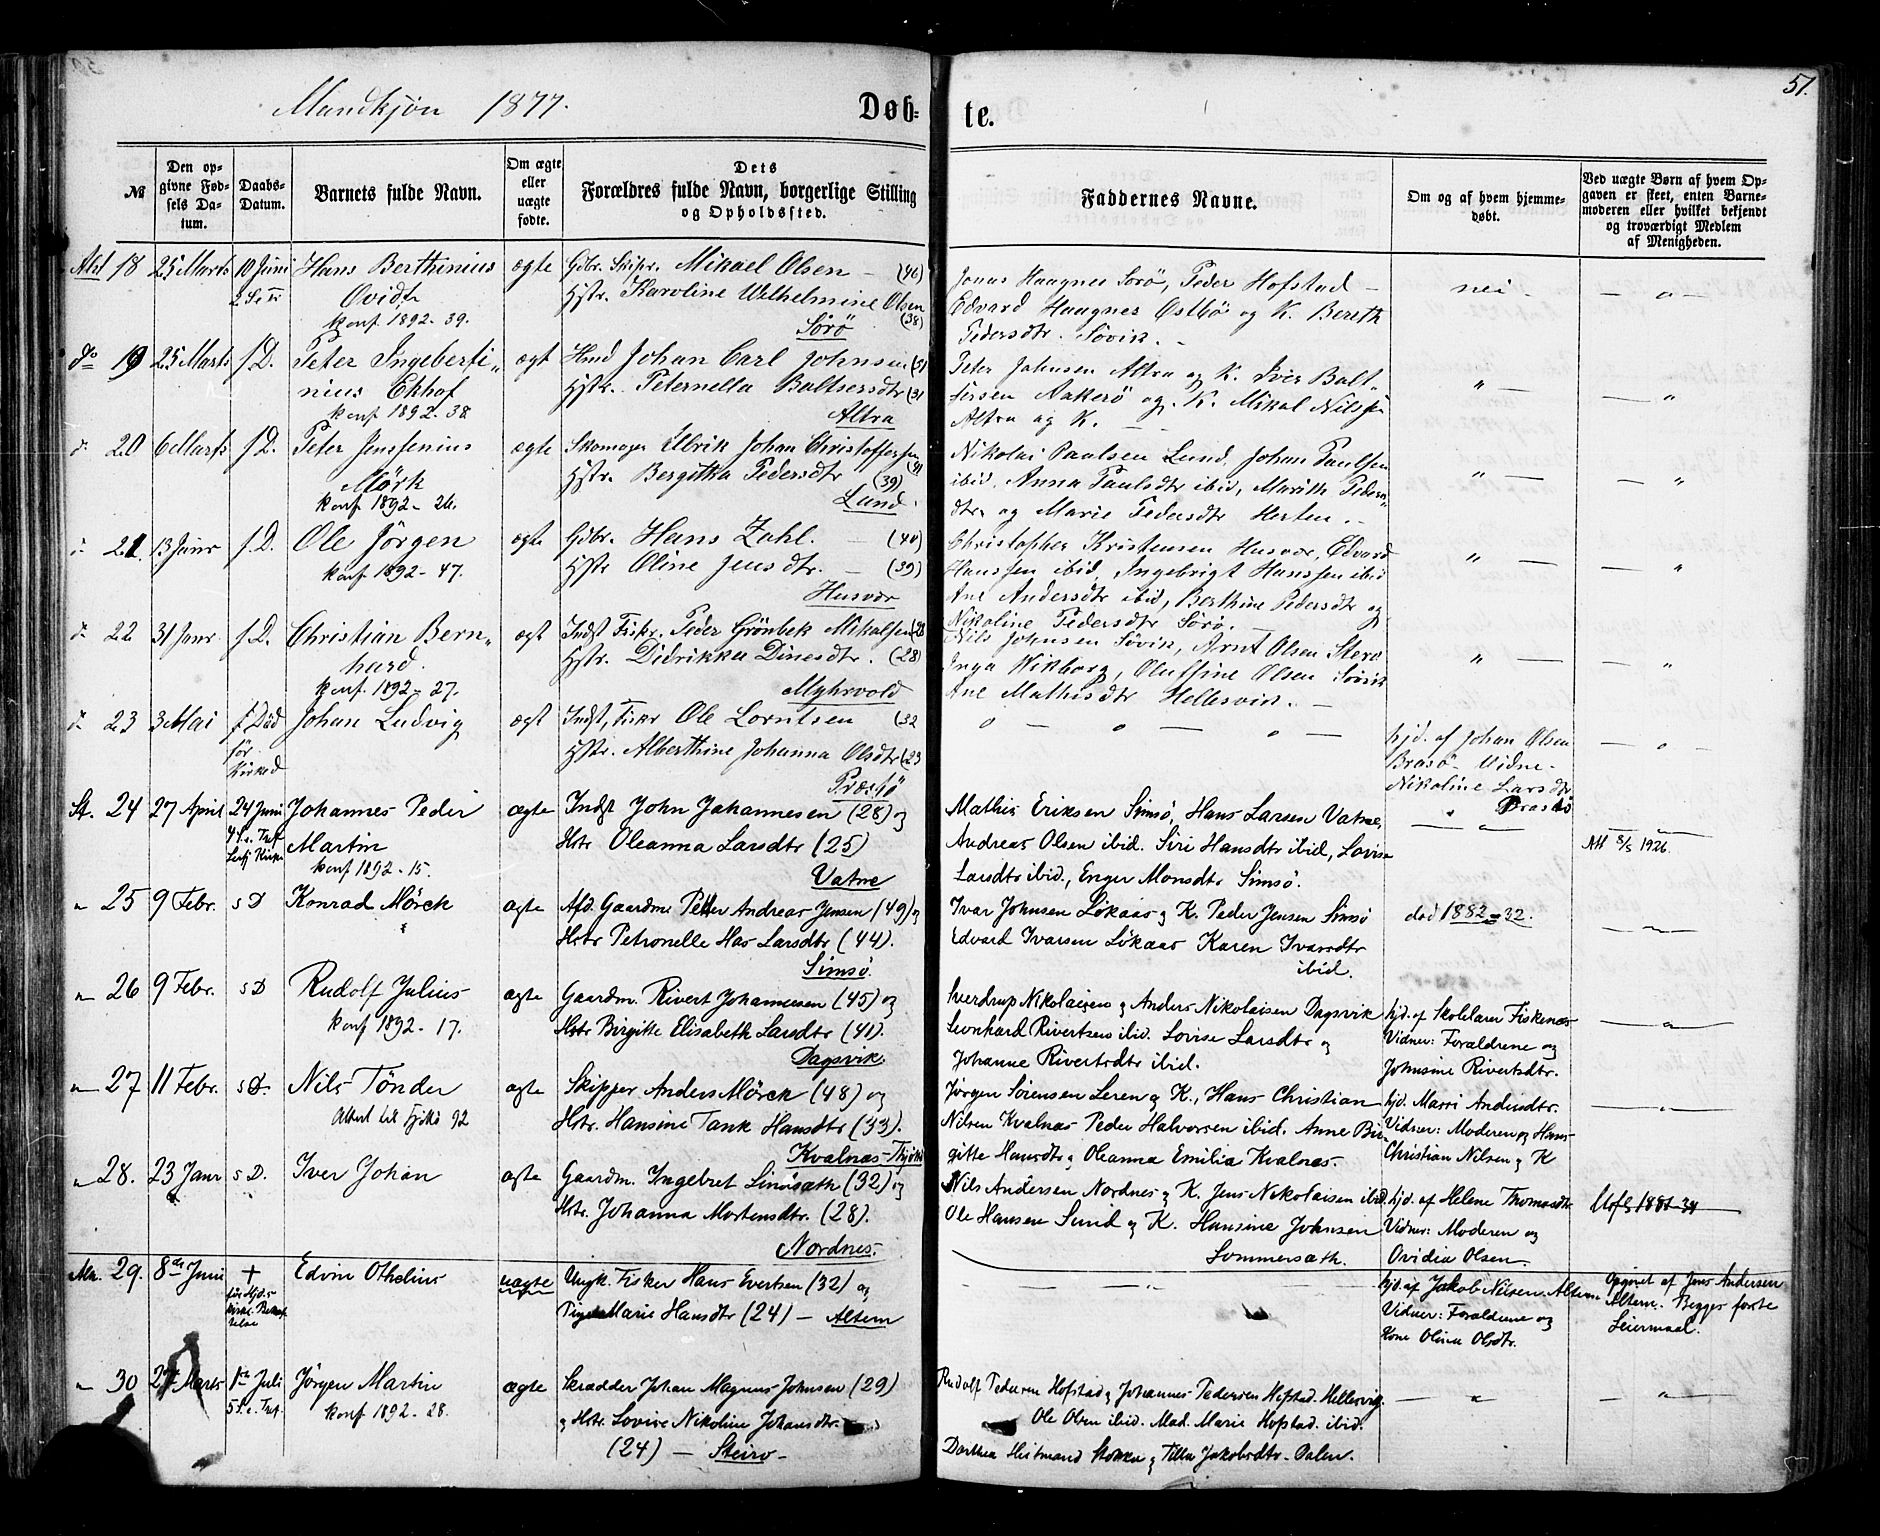 51.
Mandkjøn 1877.
Døb= te.
№
Den op-
givne Fød-
sels Da-
tum.
Daabs-
Datum.
Barnets fulde Navn.
Om ægte
eller
uægte
fødte.
Dets
Forældres fulde Navn, borgerlige Stilling
og Opholdssted.
Faddernes Navne.
Om og af hvem hjemme-
døbt.
Ved uægte Børn af hvem Op-
gaven er skeet, enten Barne-
moderen eller hvilket bekjendt
og troværdigt Medlem
af Menigheden.
18 25 Marts 10 Juni Hans Berthinius ægte Gdbr. Skipr. Mikael Olsen (46)
Ovidr Hstr. Karoline Wilhelmine Olsen (38)
konf. 1892-39. Sörö
Jonas Haagnes Sorö, Peder Hofstad
Edvard Haagnes Ostbö og K. Bereth
Pedersdtr. Sövik.
nei
do 19 25 Marts s. D. Peter Ingeberti„ ægt Hmd Johan Carl Johnsen
nius Ekhof Hstr. Peternella Baltsersdtr (31
konf 1892-38 Altra
Peter Johnsen Altra og K. Iver Balt„
sersen Aakerö og K. Mikal Nilssen
Altra og K.
20 6 Marts s. D. Peter Jenssenius ægte Skomager Ulrik Johan Christoffersen
Mörk Hstr. Bergitha Pedersdtr (39)
konf 1892-26. Lund.
Nikolai Paulsen Lund, Johan Paulsen
ibid, Anna Paulsdtr ibid, Marith Peders„
dtr og Marie Pedersdtr Hesten.
21. 13 Janr s. D. Ole Jörgen ægte Gdbr. Hans Zahl. (40)
konf 1892-47. Hstr Oline Jensdtr. (39)
Husvær
Christopher Kristensen Husvær, Edvard
Hanssen ibid, Ingebrigt Hanssen ibid
Ane Andersdtr ibid, Berthine Pedersdtr og
Nikoline Pedersdtr Sörö.
22 31 Janr s. D. Christian Bern„ ægt Indst Fiskr. Peder Grönbek Mikalsen
hard. Hstr. Didrikka Dinesdtr. (28)
konf. 1892-27. Myhrvold
Nils Johnsen Sövik, Arnt Olsen Stero
Inga Wikborg, Olufine Olsen Sövik
Ane Mathisdtr Hellesvik.
23 3 Mai Död Johan Ludvig ægt Indst, Fiskr Ole Lorntsen (32
för Hstr. Alberthine Johanna Olsdtr (23
Kirked Præstö
hjd. af Johan Olsen
Brasö Vidne
Nikoline Larsdtr
Brasö
St. 24 27 April 24 Juni Johannes Peder ægte Indst John Johannesen (28) og
4 S. e. Tref Martin Hstr Oleanna Larsdtr (25)
konf 1892-15. Vatne
Mathis Eriksen Simsö, Hans Larsen Vatne,
Andreas Olsen ibid. Siri Hansdtr ibid, Lovise
Larsdtr ibid., Enger Monsdtr Simsö.
Att 8/5 1926.
25 9 Febr. s D Konrad Mörck ægte Afd. Gaardm Petter Andreas Jensen (49) og
Hstr Petronelle Has Larsdtr (44).
Simsö.
Ivar Johnsen Lökaas og K. Peder Jensen Simsö
Edvard Ivarsen Lökaas Karen Ivarsdtr
ibid.
död 1882-32.
26 9 Febr. s D Rudolf Julius ægte Gaardm. Rivert Johannesen (45) og
konf 1892-17. Hstr Birgitte Elisabeth Larsdtr (41).
Dagsvik
Sverdrup Nikolaisen og Anders Nikolaisen Dagsvik
Leonhard Rivertsen ibid. Lovise Larsdtr og
Johanne Rivertsdtr ibid.
hjd. af Skolelærer Fiskenæs
Vidner: Forældrene og
Johnsine Rivertsdtr.
27 11 Febr. s D. Nils Tönder ægte Skipper Anders Mörck (48) og
Attest til Tjötö 92 Hstr. Hansine Tank Hansdtr (33).
Kvalnæs-Thjötö
Jörgen Sörensen Leren og K., Hans Christian
Nilsen Kvalnæs Peder Halvorsen ibid. Anne Bir
gitte Hansdtr og Oleanna Emilia Kvalnæs.
hjd. Marri Andersdtr.
Vidner: Moderen og Hans
Christian Nilsen og K
28. 23 Janr s D. Iver Johan ægte Gaardm. Ingebret Simsæth (32) og
Hstr. Johanna Mortensdtr. (28).
Nordnes.
Nils Andersen Nordnes og K. Jens Nikolaisen ibid.
Ole Hansen Sund og K. Hansine Johnsen
Sommersæth.
hjd. af Helene Thomasdtr
Vidner: Moderen og
Ovidia Olsen
29. 8de Juni + Edvin Othelius uægte Ungk. Fisker Hans Evertsen (32) og
Pigen Marie Hansdtr (24) — Altern
hjd. af Jakob Nilsen Altern
Vidner: Forældrene og
Kone Olina Olsdtr.
Opgivet af Jens Andersen
Altern. Begges første
Leiermaal.
30 27 Marts 1ste Juli Jörgen Martin ægte Skrædder Johan Magnus Johnsen (29)
5 S. e. Tref. konf 1892-28. og Hstr. Lovise Nikoline Johansdtr.
(24) — Steiro
Rudolf Pedersen Hofstad og Johannes Pedersen Hofstad. Hellesvig.
Ole Olsen ibid. Mad. Marie Hofstad. ibid.
Dorthea Heitmand Stokka og Tilla Jakobsdtr. Dalen.